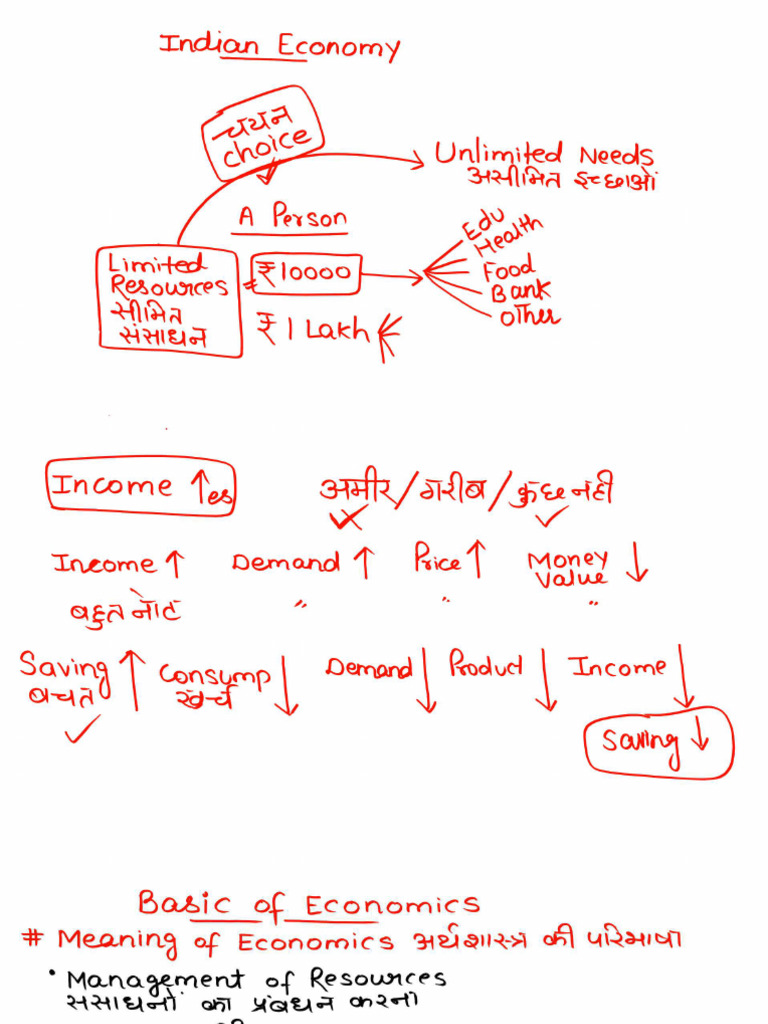 Indian Economy
चयन
choice
Unlimited Needs
असीमित इच्छाओं
A Person
Limited
Resources
सीमित
संसाधन
= ₹10000
Edu
Health
Food
Bank
Other
₹ 1 Lakh
Income ↑es
अमीर/गरीब/कुछ नही
Income ↑ Demand ↑ Price ↑ Money Value ↓
बहुत नोट " " "
Saving ↑ Consump ↓ Demand ↓ Product ↓ Income ↓
बचत खर्च
Saving ↓
Basic of Economics
# Meaning of Economics अर्थशास्त्र की परिभाषा
• Management of Resources
संसाधनों का प्रंबधन करना